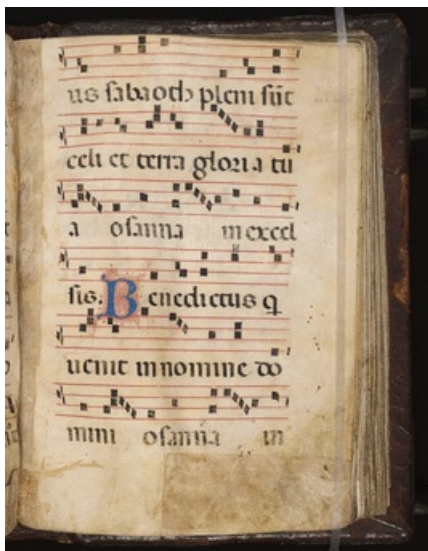 us sabaoth pleni sūt
celi et terra gloria tu
a osanna in excel
sis. Benedictus q
uenit in nomine do
mini osanna in